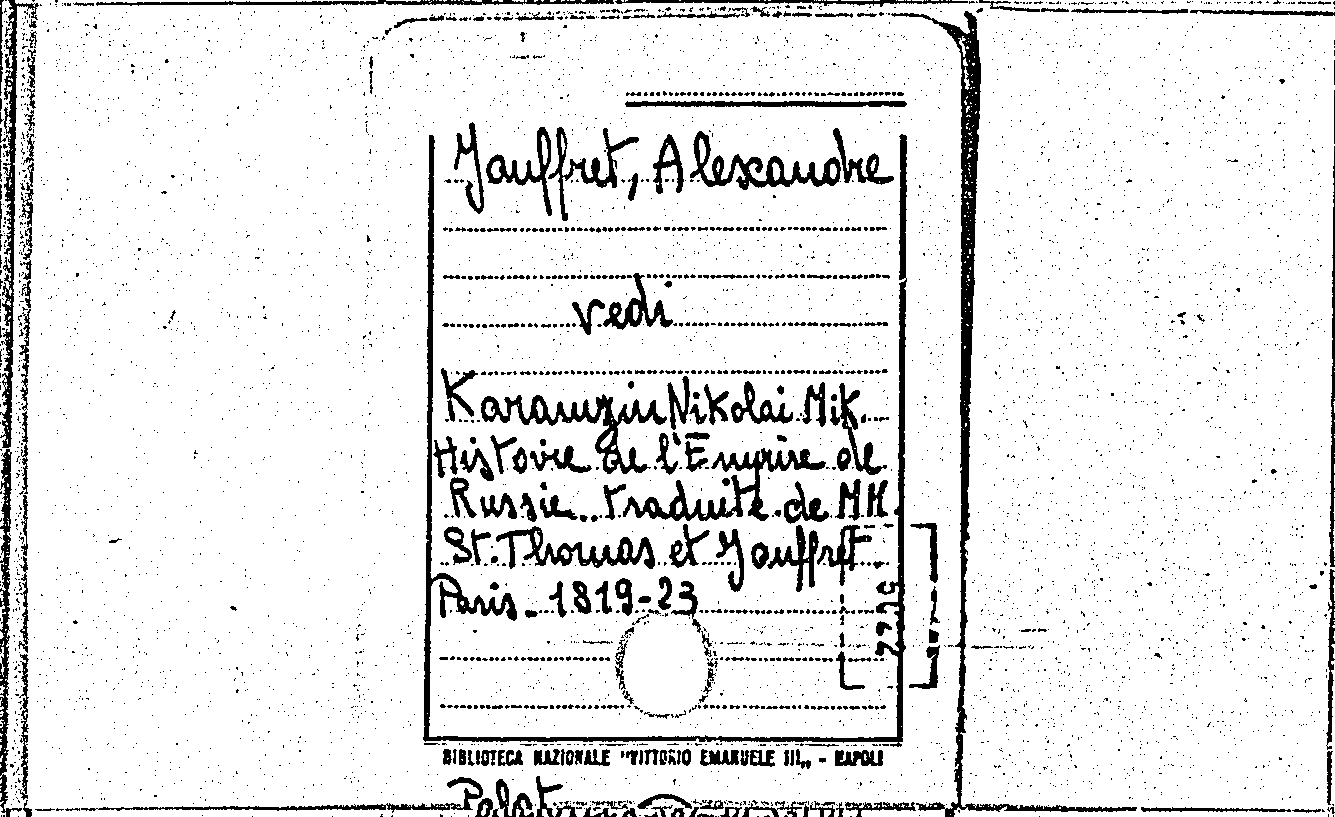 Jauffret, Alexandre
vedi
Karamzin Nikolai Mik.
Histoire de l'Empire de
Russie.. traduite de MM.
St. Thomas et Jauffret.
Paris. 1819-23
BIBLIOTECA NAZIONALE "VITTORIO EMANUELE III„ - NAPOLI